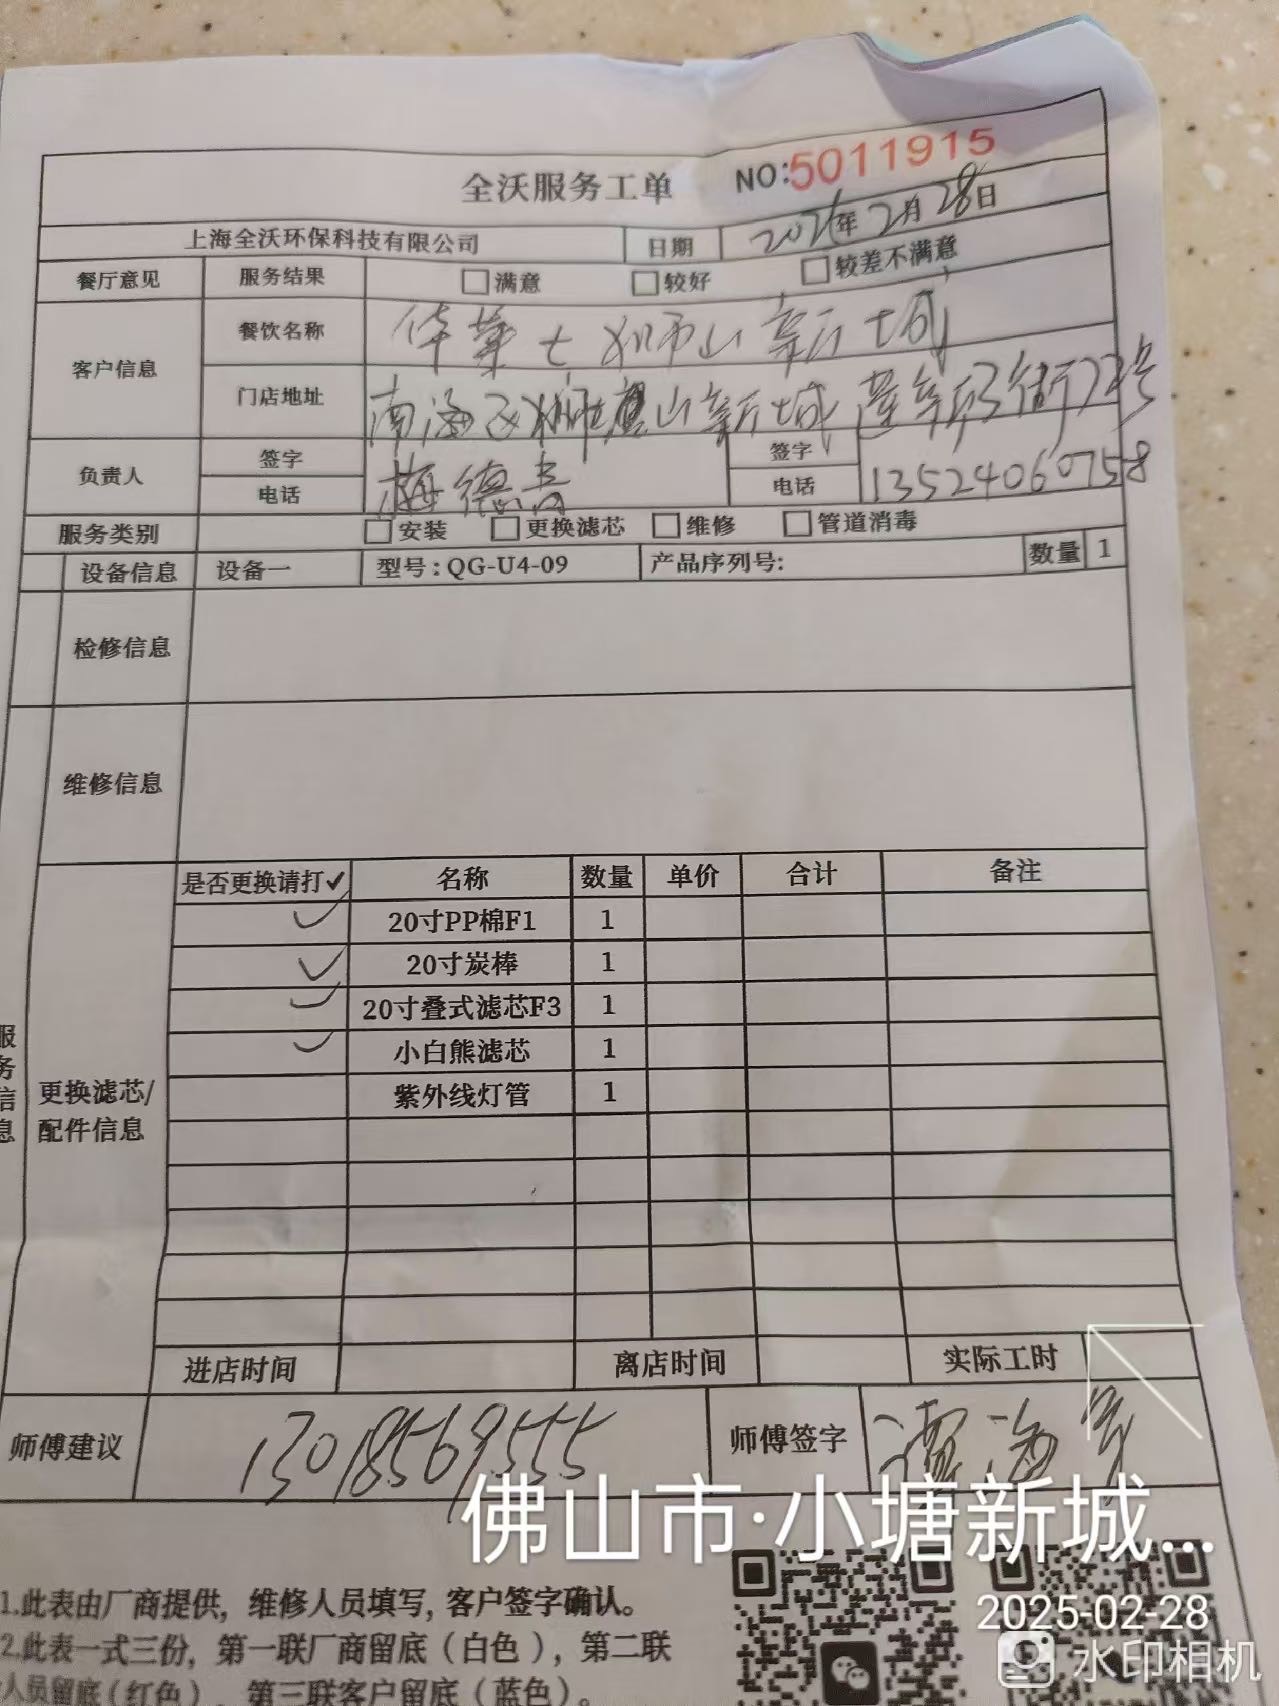 全沃服务工单 NO:5011915
上海全沃环保科技有限公司 日期 2025年2月28日
餐厅意见 服务结果 □满意 □较好 □较差不满意
客户信息 餐饮名称 华莱士狮山新城
门店地址 南海区狮山新城 街72号
负责人 签字 梅德 签字
电话 电话 13524060758
服务类别 □安装 □更换滤芯 □维修 □管道消毒
设备信息 设备一 型号:QG-U4-09 产品序列号: 数量 1
检修信息
维修信息
服务信息
更换滤芯/配件信息
是否更换请打✓ 名称 数量 单价 合计 备注
✓ 20寸PP棉F1 1
✓ 20寸炭棒 1
✓ 20寸叠式滤芯F3 1
✓ 小白熊滤芯 1
紫外线灯管 1
进店时间 离店时间 实际工时
师傅建议 13018569555 师傅签字 谭海
佛山市·小塘新城...
1.此表由厂商提供,维修人员填写,客户签字确认。
2.此表一式三份,第一联厂商留底(白色),第二联
人员留底(红色),第三联客户留底(蓝色)。
2025-02-28
水印相机